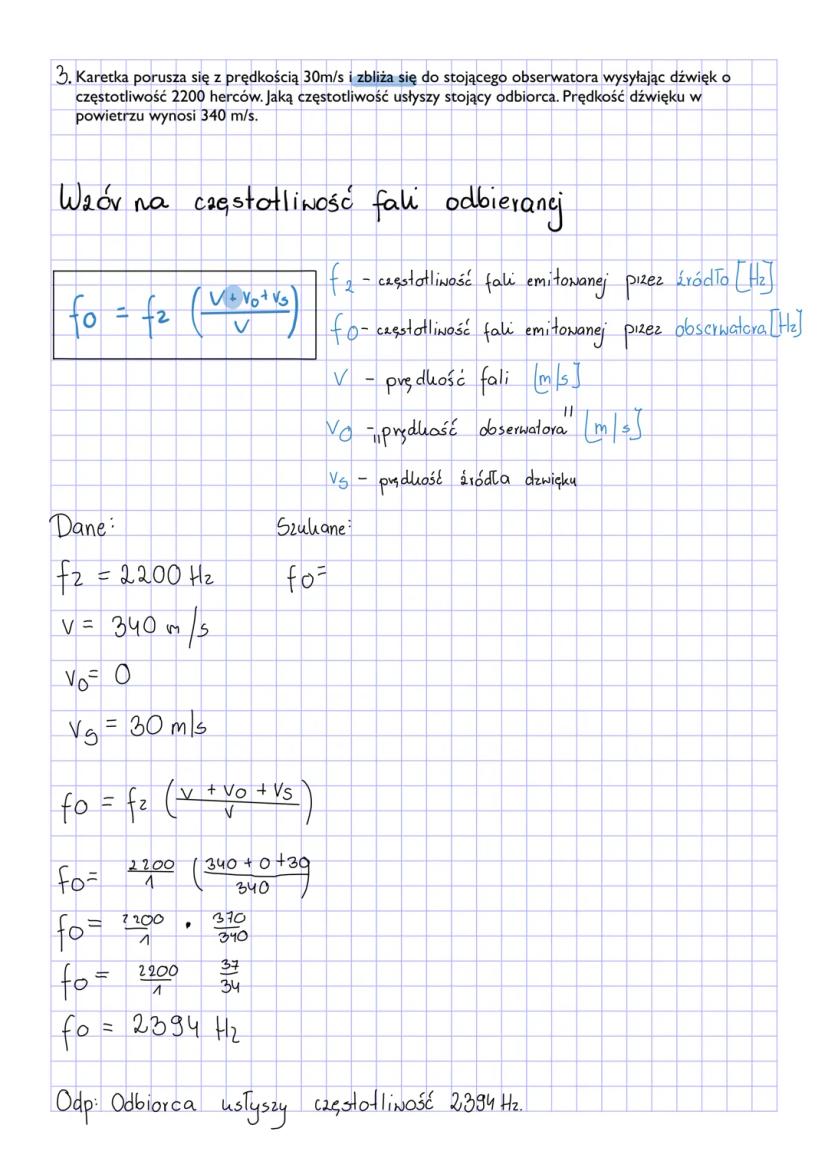 3. Karetka porusza się z prędkością 30m/s i zbliża się do stojącego obserwatora wysyłając dźwięk o
częstotliwość 2200 herców. Jaką częstotliwość usłyszy stojący odbiorca. Prędkość dźwięku w
powietrzu wynosi 340 m/s.
Wzór na częstotliwość fali odbieranej
fo = fz (V + Vo + Vs / V)
fz - częstotliwość fali emitowanej przez źródło [Hz]
fo - częstotliwość fali emitowanej przez obserwatora [Hz]
V - prędkość fali [m/s]
Vo - "prędkość obserwatora" [m/s]
Vs - prędkość źródła dzwięku
Dane: Szukane:
fz = 2200 Hz fo=
V = 340 m/s
Vo = 0
Vs = 30 m/s
fo = fz (V + Vo + Vs / V)
fo = 2200/1 (340 + 0 + 30 / 340)
fo = 2200/1 · 370/340
fo = 2200/1 37/34
fo = 2394 Hz
Odp: Odbiorca usłyszy częstotliwość 2394 Hz.